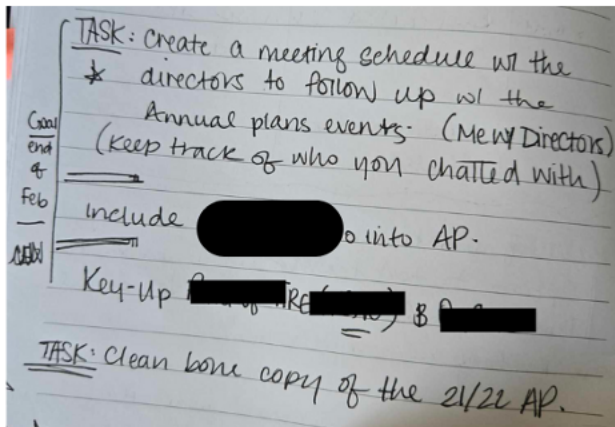 TASK: Create a meeting schedule w/ the
* directors to follow up w/ the
Annual plans events. (Me w/ Directors)
(Keep track of who you chatted with)
Goal
end
of
Feb
include
into AP.
Key-Up
RE
$
TASK: Clean bone copy of the 21/22 AP.